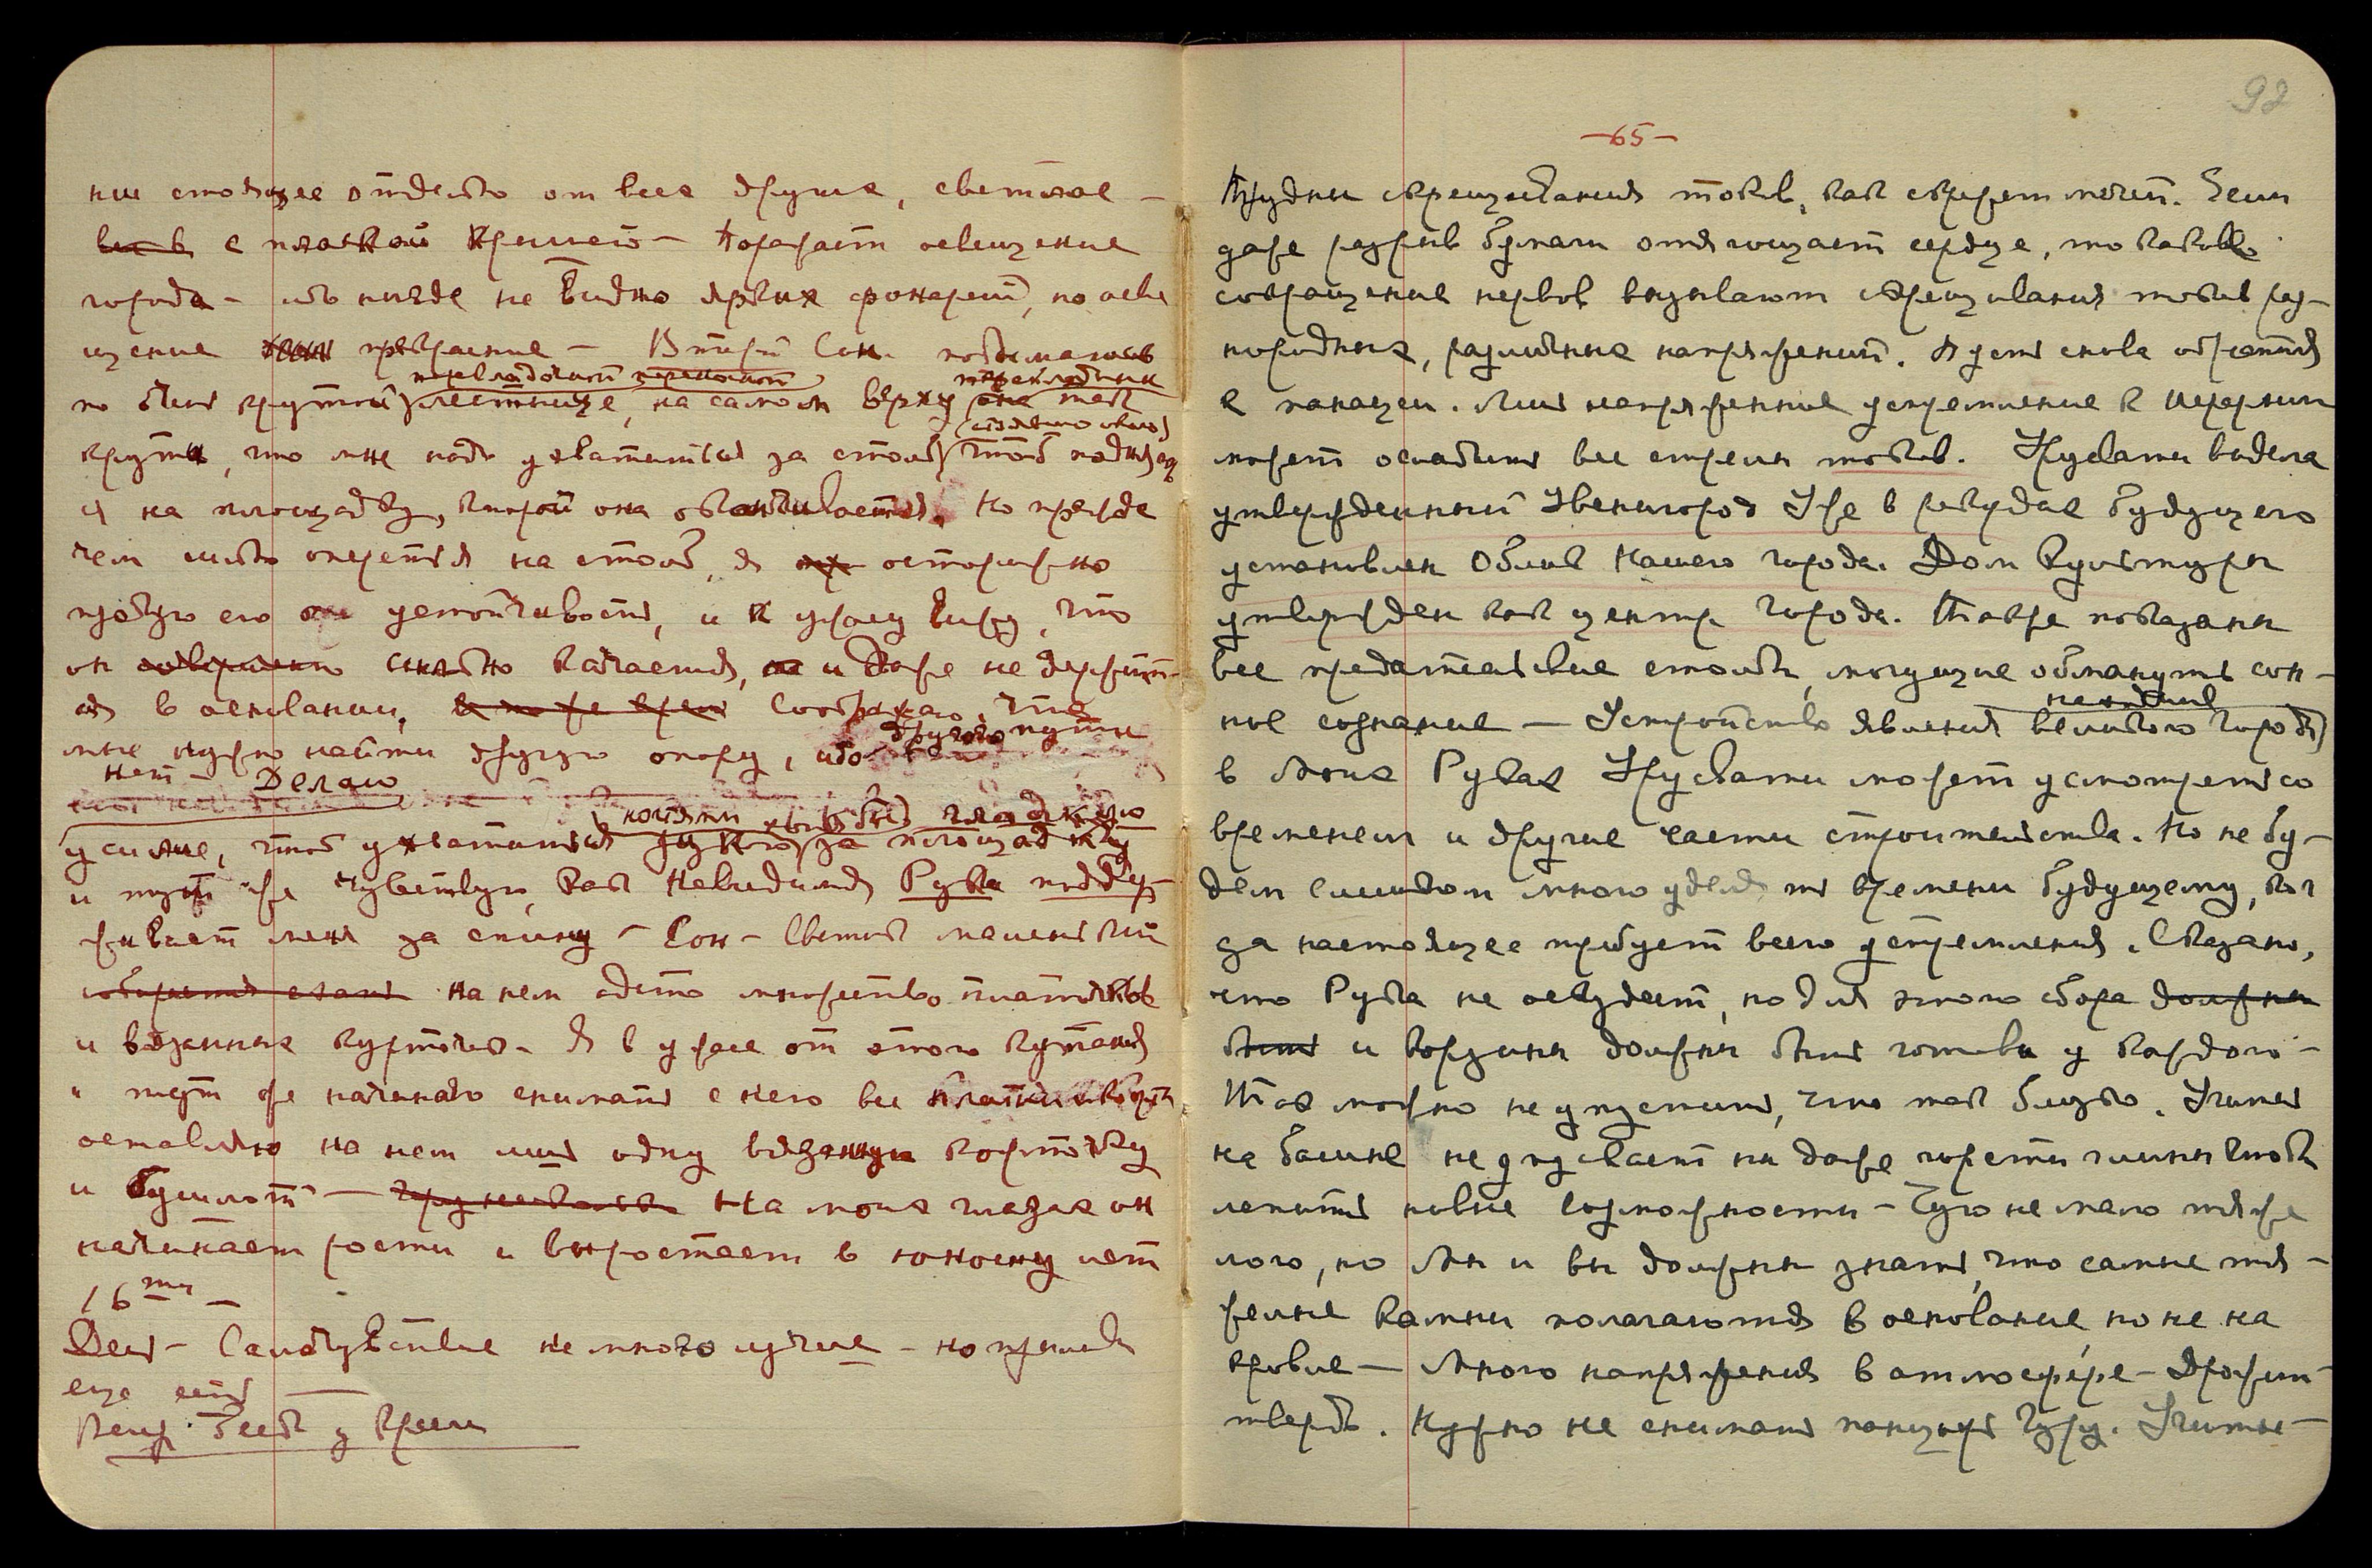 ние стоящее отдельно от всех других, светлое —
с плоской крышей — Поражает освещение
города — ибо нигде не видно ярких фонарей, но осве
щение прекрасное — Второй Сон. подымаюсь
перекладины
по очень крутой лестнице, на самом верху она так
круты, что мне надо ухватиться за столб чтоб поднять
ся на площадку, которой она оканчивается. Но прежде
чем опереться на столб, я осторожно
пробую его устойчивость, и к ужасу вижу, что
он совершенно сильно качается, и даже не держит-
ся в основании, в то же время Соображаю, что
другого пути
мне нужно найти другую опору, ибо
нет — Делаю
гладкую
усилие, чтоб ухватиться за площадку
и тут же чувствую, как Невидимая Рука поддер-
живает меня за спину — Сон — Светик маленький
на нем одето множество платков
и вязанных курточек — Я в ужасе от этого кутанья
и тут же начинаю снимать с него все платки и
оставляю на нем лишь одну вязанную кофточку
и — На моих глазах он
начинает расти и вырастает в юношу лет
16ти —
День — Самочувствие не много лучше — но прилив
еще есть —
Веч. Бес. у Вреш
92
— 65 —
Трудны скрещивания токов, как скрежет мечей. Если
даже разрыв бумаги отягощает сердце, то каково
сокращение нервов вызывают скрещивания токов раз-
нородных, различных напряжений. Пусть снова обратятся
к панацеи. Лишь напряженное устремление к Иерархии
может ослабить все стрелы токов. Урусвати видела
утвержденный Звенигород Уже в рекордах будущего
установлен Облик Нашего города. Дом Культуры
утвержден как центр города. Также показаны
все предательские столбы, могущие обмануть сон-
ное сознание — Устройство явления великого города
в Моих Руках Урусвати может усмотреть со
временем и другие части строительства. Но не бу-
дем слишком много уделять времени будущему, ког
да настоящее требует всего устремления. Сказано,
что Рука не оскудеет, но для этого сбора должны
быть и корзины должны быть готовы у каждого —
Так можно не упустить, что так близко. Учитель
на башне не упускает ни даже горсти глины чтобы
лепить новые возможности — Чую не мало тяже
лого, но Мы и вы должны знать, что самые тя-
желые камни полагаются в основание, но не на
кровле — Много напряжения в атмосфере — Дрожит
твердь. Нужно не снимать панцыря Гуру. Учиты-